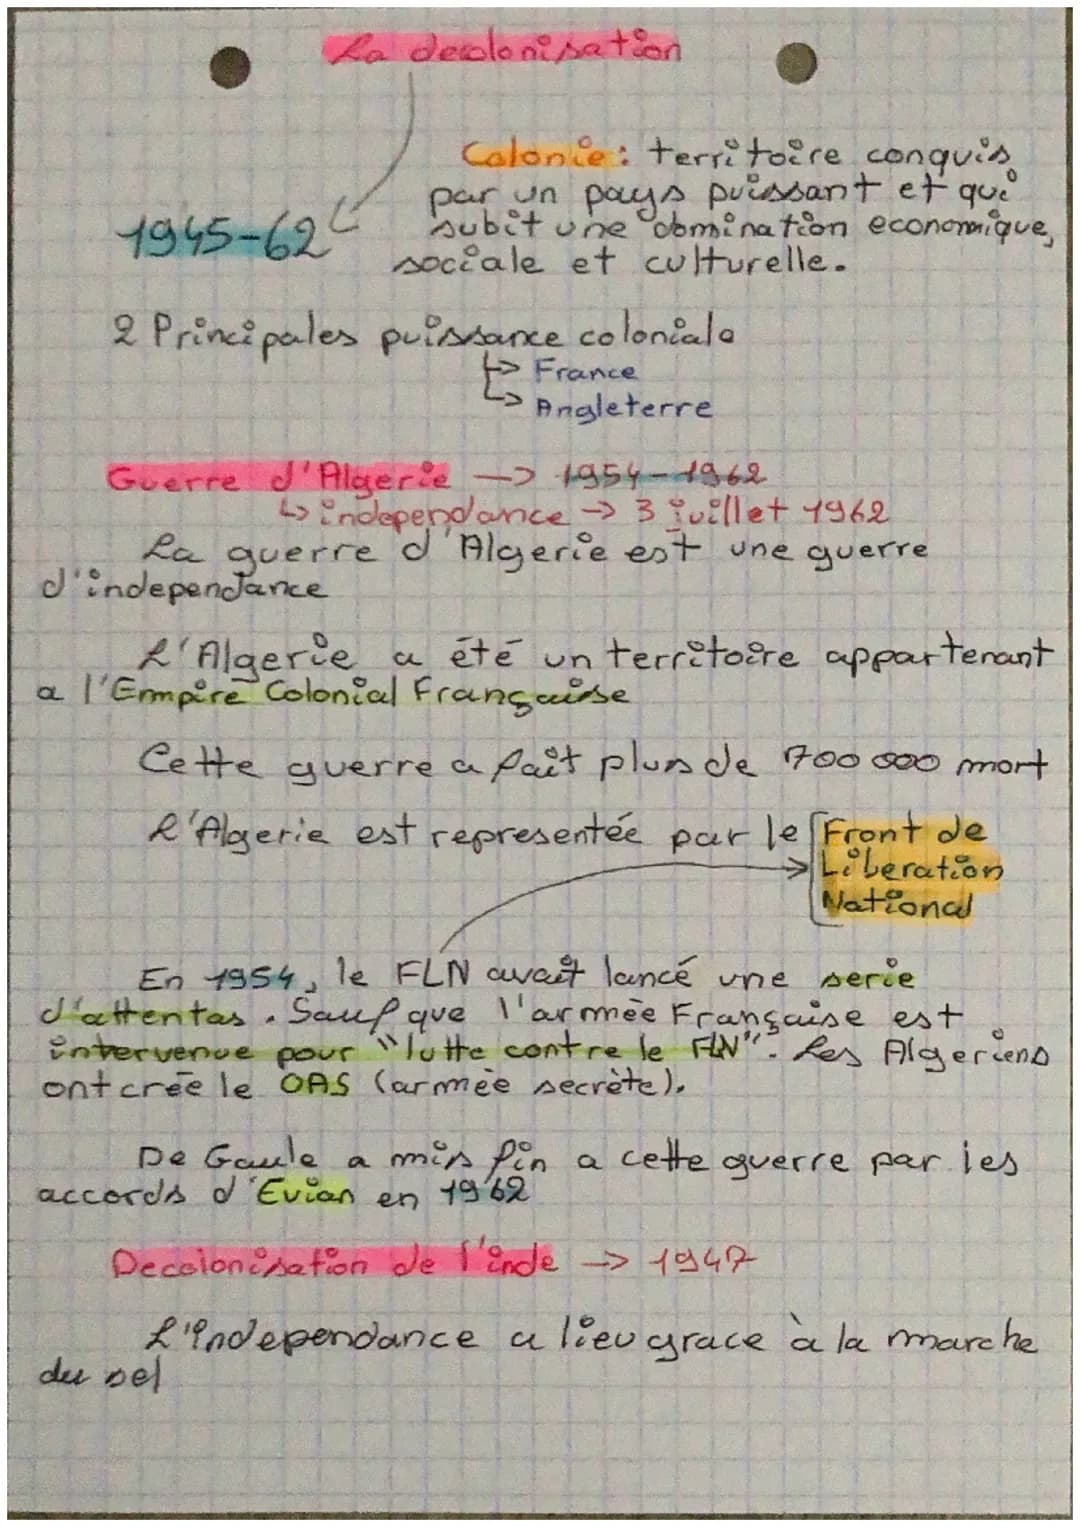 La decolonisation
Colonie : territoire conquis
par un pays puissant et qui
1945-62
subit une domination economique,
sociale et culturelle.
2 Principales puissance coloniale
↳ France
↳ Angleterre
Guerre d'Algerie → 1954-1962
↳ independance → 3 juillet 1962
La guerre d'Algerie est une guerre
d'independance
L'Algerie a été un territoire appartenant
a l'Empire Colonial Française
Cette guerre a fait plus de 700 000 mort
L'Algerie est representée par le Front de
Liberation
National
En 1954, le FLN avait lancé une serie
d'attentas. Sauf que l'armée Française est
intervenue pour "lutte contre le FLN". Les Algeriens
ont crée le OAS (armée secrète).
De Gaule a mis fin a cette guerre par les
accords d'Evian en 1962
Decolonisation de l'inde → 1947
L'independance a lieu grace à la marche
du sel